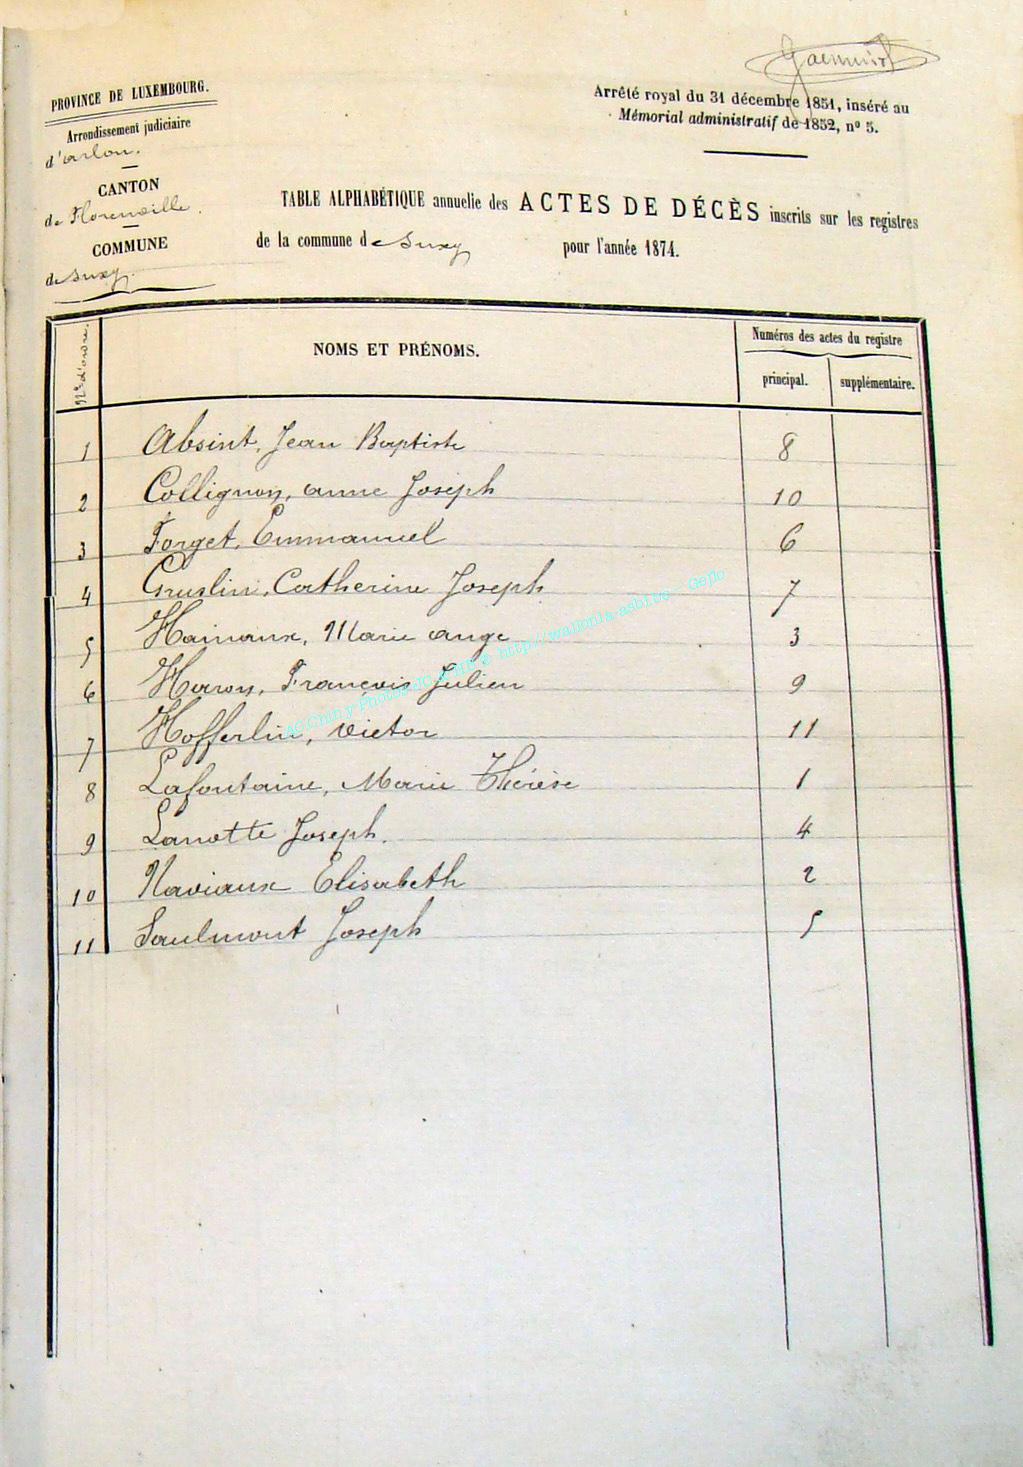 PROVINCE DE LUXEMBOURG.
Arrondissement judiciaire
d'arlon.
CANTON
de Florenville.
COMMUNE
de Suxy.
Arrêté royal du 31 décembre 1851, inséré au
Mémorial administratif de 1852, nº 5.
TABLE ALPHABÉTIQUE annuelle des ACTES DE DÉCÈS inscrits sur les registres
de la commune de Suxy pour l'année 1874.
Nºs d'ordre.
NOMS ET PRÉNOMS.
Numéros des actes du registre
principal. supplémentaire.
1 Absint, Jean Baptiste 8
2 Collignon, anne Joseph 10
3 Forget, Emmanuel 6
4 Gruslin, Catherine Joseph 7
5 Hainaux, Marie ange 3
6 Haron, François Julien 9
7 Hofferlin, Victor 11
8 Lafontaine, Marie Thérèse 1
9 Lanotte Joseph. 4
10 Naviaux Elisabeth 2
11 Saulmont Joseph 5
http://wallonia-asbl.be - Geflo